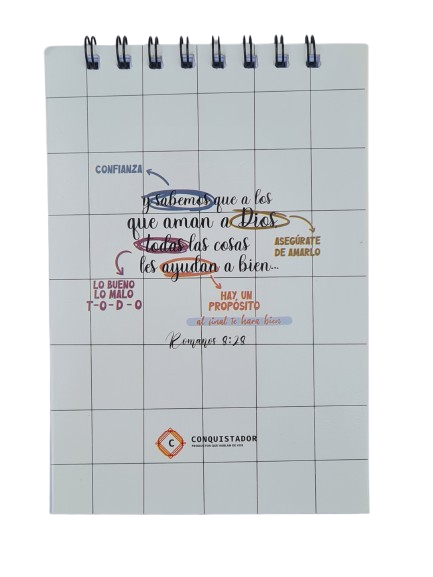 CONFIANZA
y sabemos que a los
que aman a Dios,
todas las cosas
les ayudan a bien...
ASEGÚRATE
DE AMARLO
LO BUENO
LO MALO
T-O-D-O
HAY UN
PROPÓSITO
al final te hará bien
Romanos 8:28
C
CONQUISTADOR